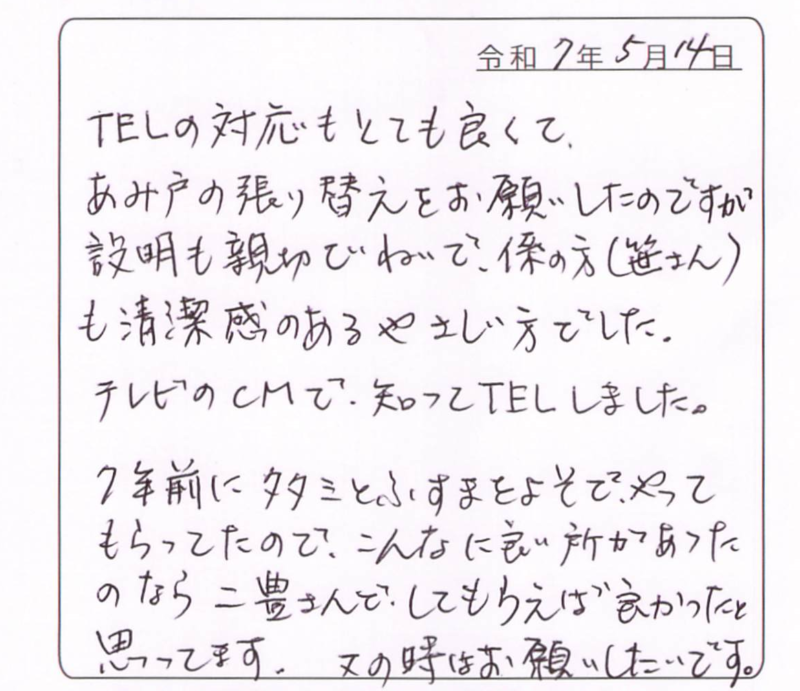 令和7年5月14日
TELの対応もとても良くて、
あみ戸の張り替えをお願いしたのですが
説明も親切でいねいで、係の方(笹さん)
も清潔感のあるやさしい方でした。
テレビのCMで、知ってTELしました。
7年前にタタミとふすまをよそで、やって
もらってたので、こんなに良い所があった
のなら二豊さんで、してもらえば良かったと
思ってます。 又の時はお願いしたいです。